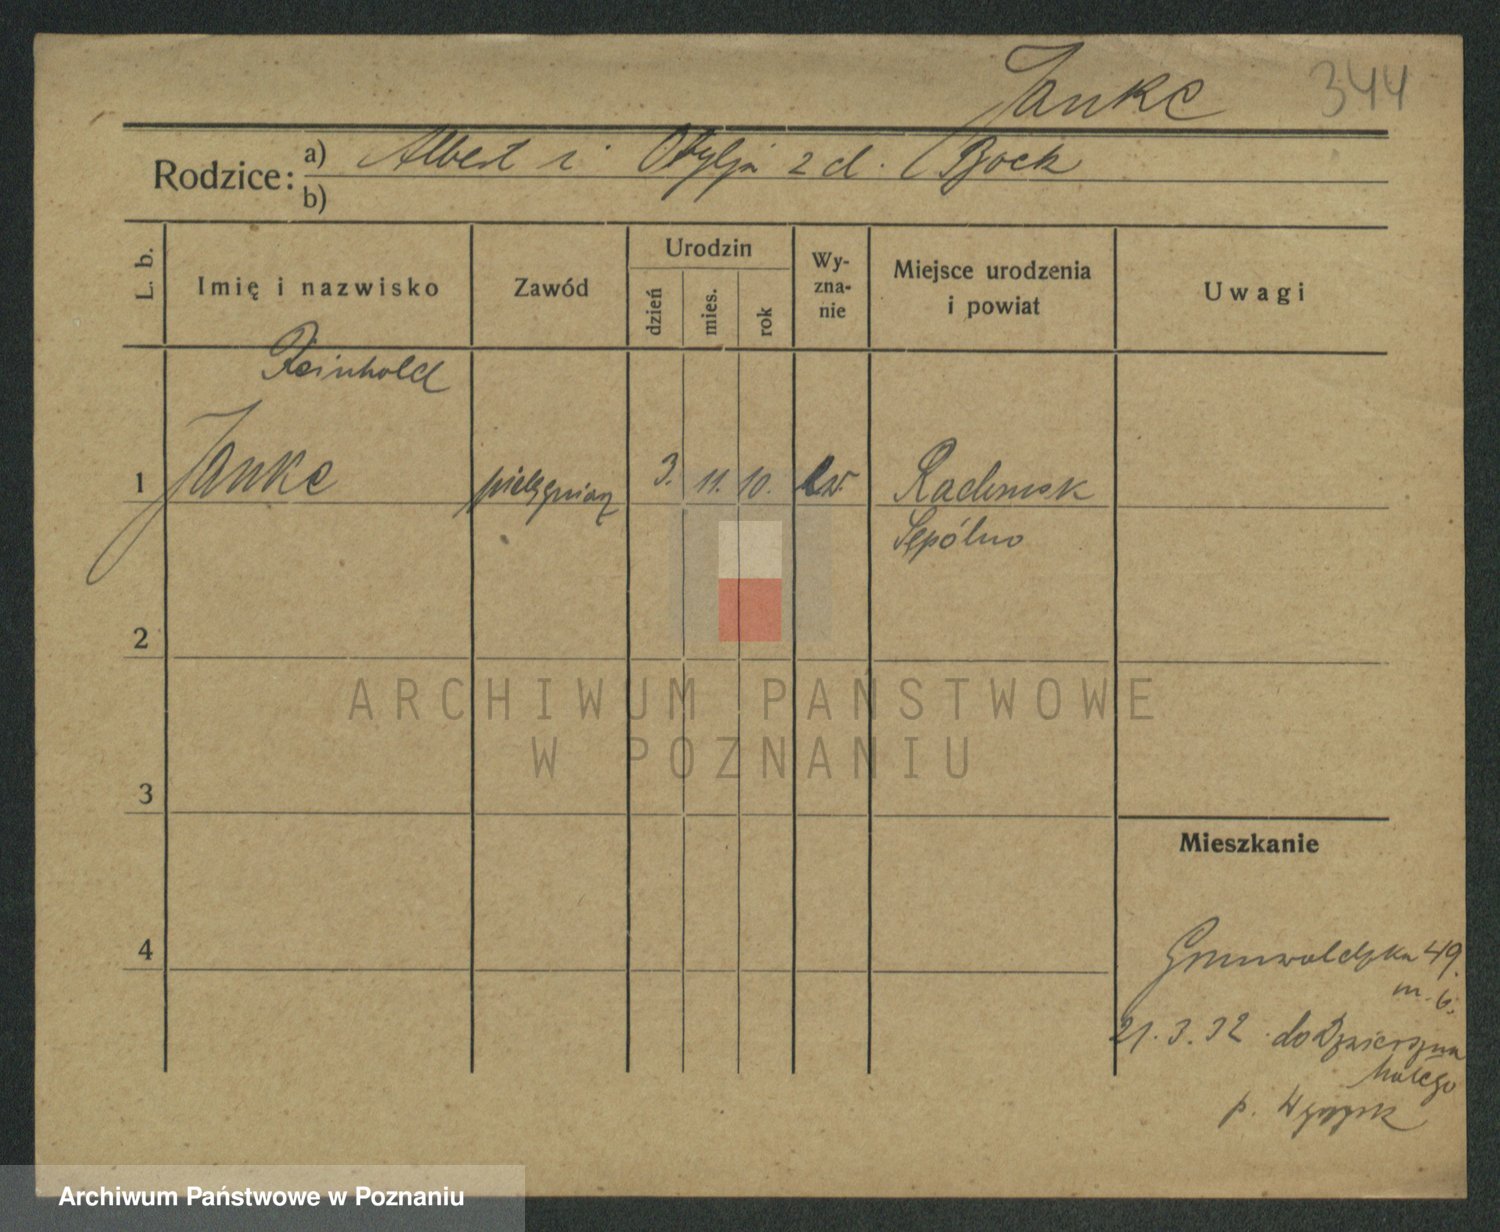 Janke 344
Rodzice: a) Albert i Otylja z d. Bock
b)
L. b. Imię i nazwisko Zawód Urodzin dzień mies. rok Wy-zna-nie Miejsce urodzenia i powiat Uwagi
Reinhold
1 Janke pielęgniarz 3. 11. 10. ew. Radonsk
Sępólno
2
ARCHIWUM PAŃSTWOWE
W POZNANIU
3
Mieszkanie
4 Grunwaldzka 49.
m. 6.
21.3.32 do Dzwierszna
małego
p. Wyrzysk
Archiwum Państwowe w Poznaniu